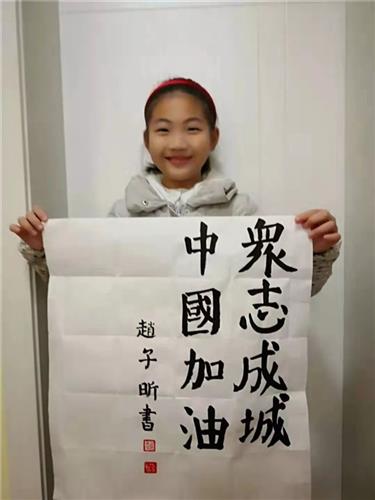 衆志成城
中國加油
趙子昕書